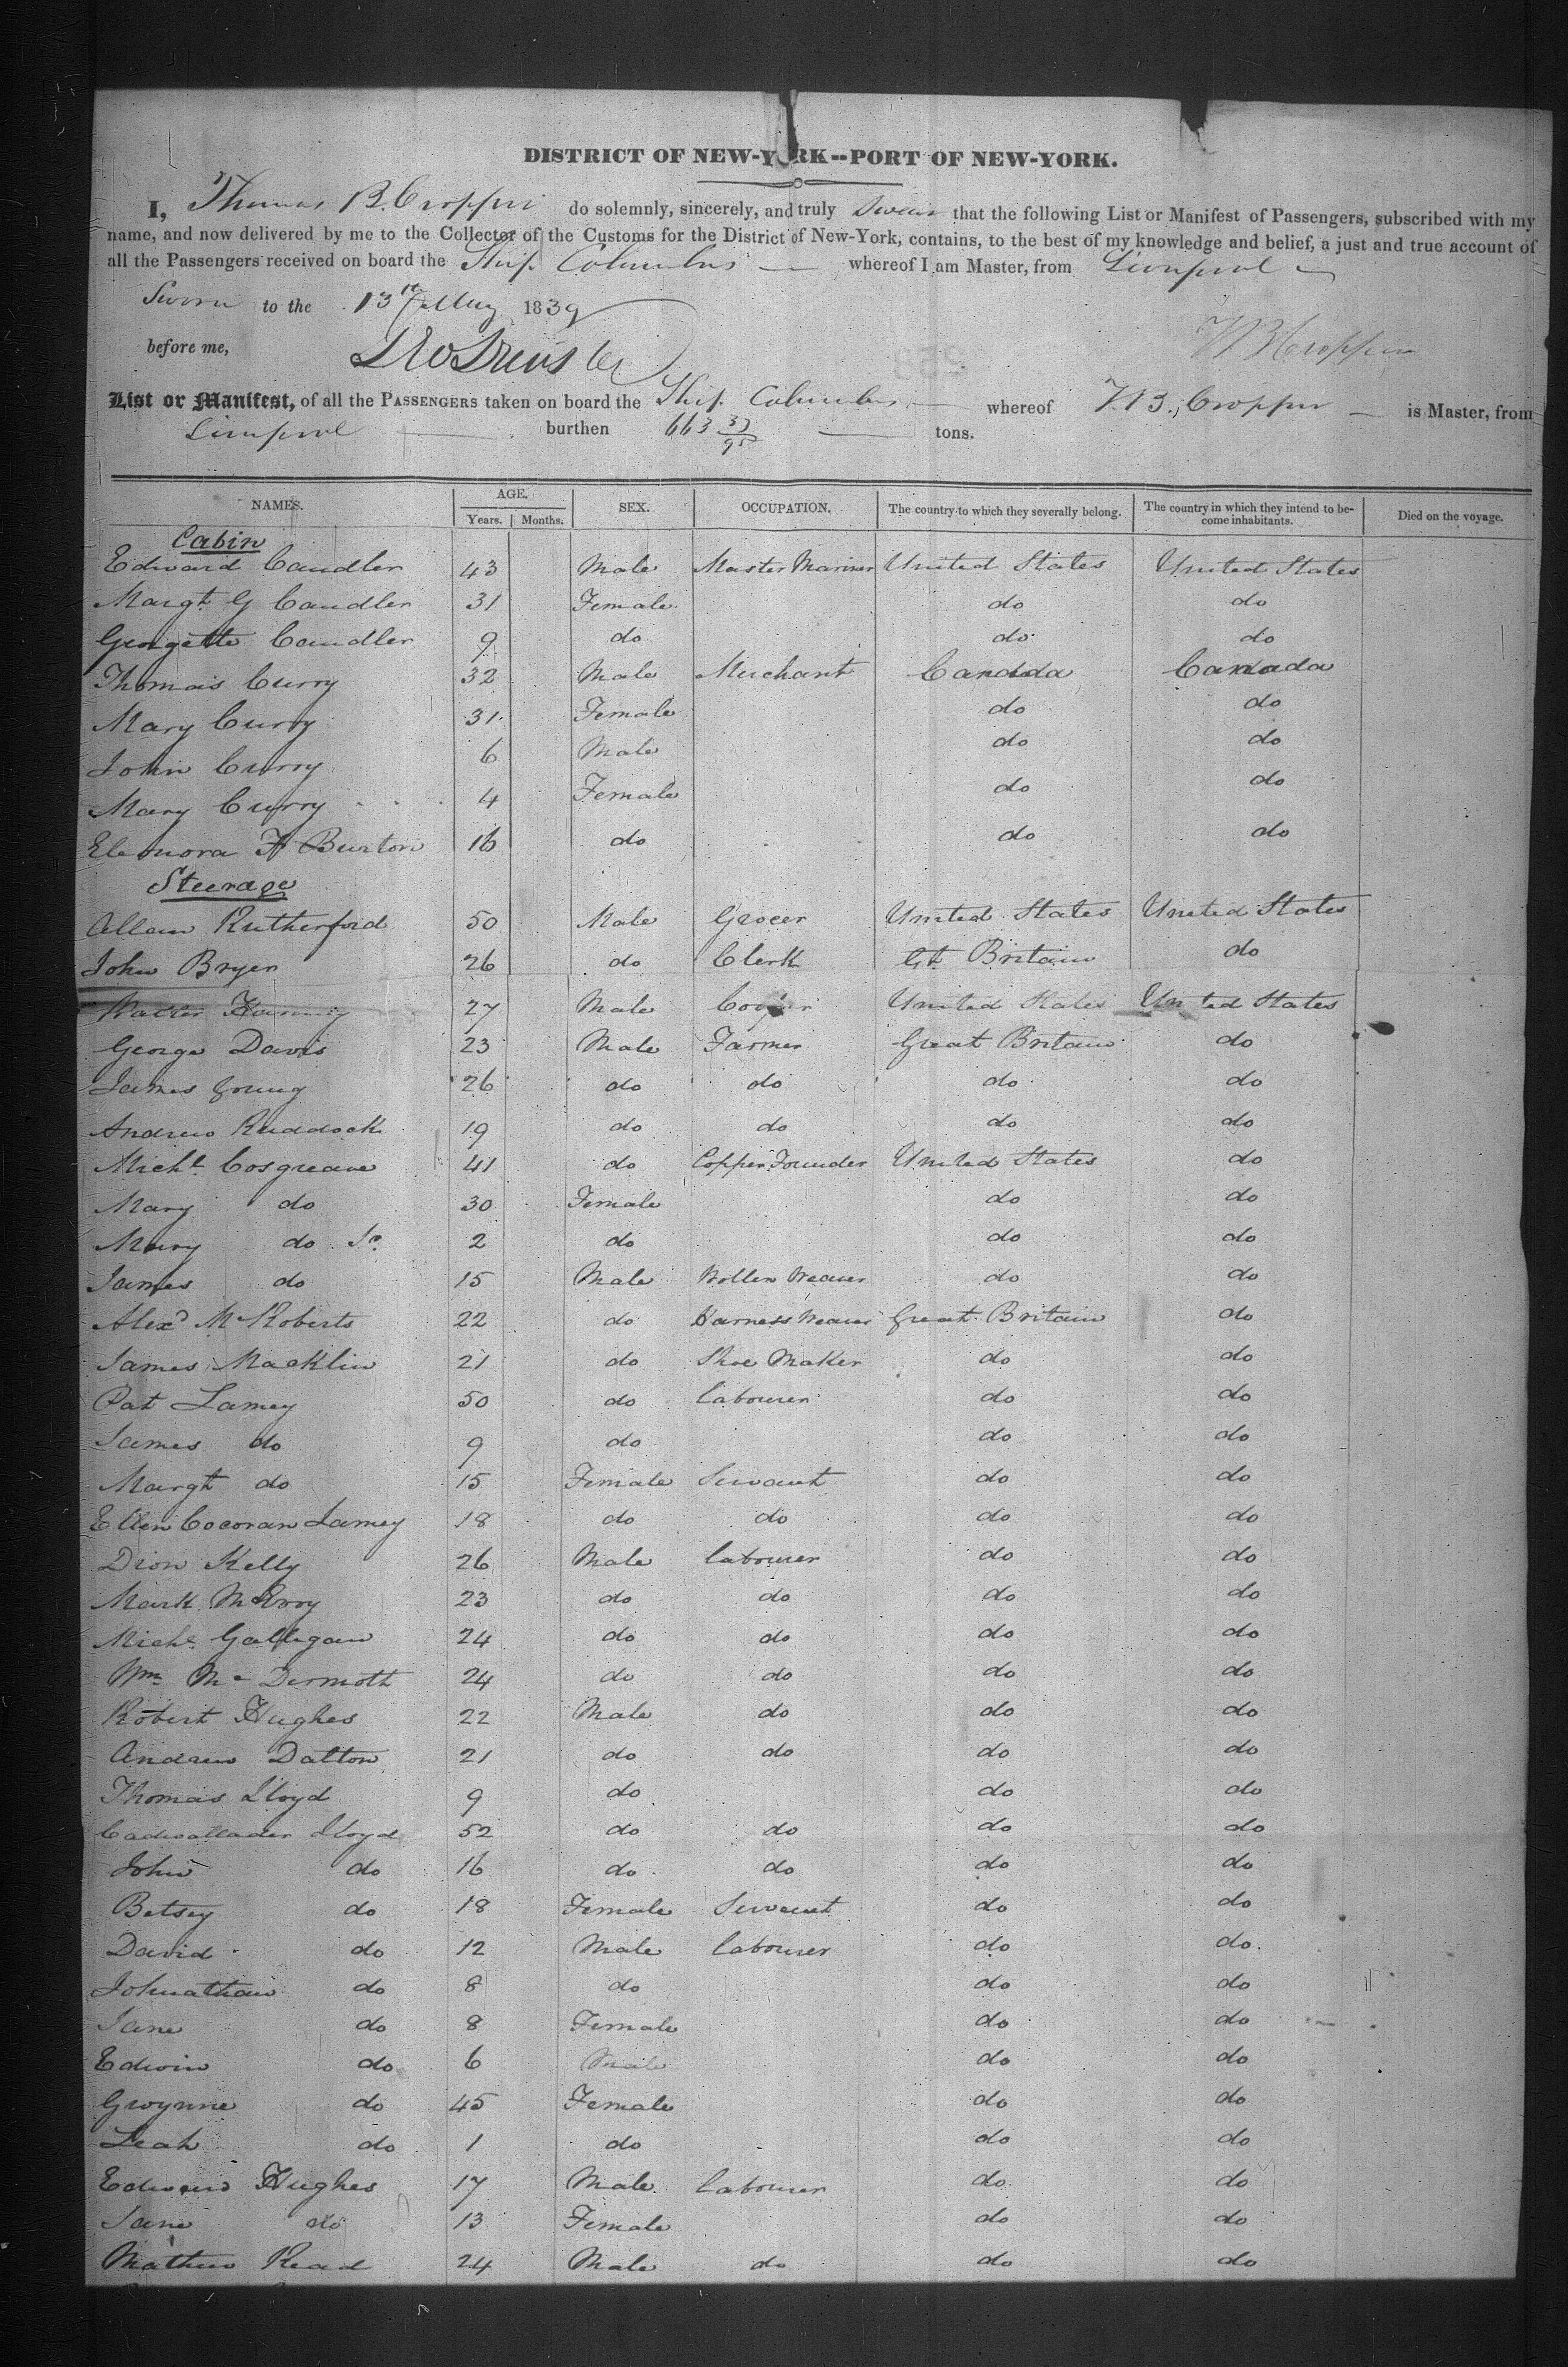 DISTRICT OF NEW-YORK--PORT OF NEW-YORK.
I, Thomas B. Cropper do solemnly, sincerely, and truly Swear that the following List or Manifest of Passengers, subscribed with my
name, and now delivered by me to the Collector of the Customs for the District of New-York, contains, to the best of my knowledge and belief, a just and true account of
all the Passengers received on board the Ship Columbus whereof I am Master, from Liverpool
Sworn to the 13th May 1839
before me, T B Cropper
List or Manifest, of all the PASSENGERS taken on board the Ship Columbus whereof T. B. Cropper is Master, from
Liverpool burthen 663 tons.
NAMES. AGE. SEX. OCCUPATION. The country to which they severally belong. The country in which they intend to be- Died on the voyage.
Years. Months. come inhabitants.
Cabin
Edward Candler 43 Male Master Mariner United States United States
Margt. G Candler 31 Female do do
Georgette Candler 9 do do do
Thomas Curry 32 Male Merchant Canada Canada
Mary Curry 31 Female do do
John Curry 6 Male do do
Mary Curry 4 Female do do
Eleonora F Burton 16 do do do
Steerage
Allan Rutherford 50 Male Grocer United States United States
John Bryer 26 do Clerk Gt. Britain do
Walter 27 Male United States United States
George Davis 23 Male Farmer Great Britain do
James Young 26 do do do do
Andrew Ruddock 19 do do do do
Michl. Cosgreave 41 do Copper Founder United States do
Mary do 30 Female do do
Mary do Jr. 2 do do do
James do 15 Male Wollen Weaver do do
Alexd McRoberts 22 do Harness Weaver Great Britain do
James Macklin 21 do Shoe Maker do do
Pat Lamey 50 do labourer do do
James do 9 do do do
Margt do 15 Female Servant do do
Ellen Cocoran Lamey 18 do do do do
Dion Kelly 26 Male labourer do do
Mark McEvoy 23 do do do do
Michl. Galligan 24 do do do do
Wm. Mc Dermott 24 do do do do
Robert Hughes 22 Male do do do
Andrew Dalton 21 do do do do
Thomas Lloyd 9 do do do
Cadwallader Lloyd 52 do do do do
John do 16 do do do do
Betsey do 18 Female Servant do do
David do 12 Male labourer do do
Johnathan do 8 do do do
Jane do 8 Female do do
Edwin do 6 Male do do
Gwynne do 45 Female do do
Leah do 1 do do do
Edward Hughes 17 Male labourer do do
Jane do 13 Female do do
Mathew Read 24 Male do do do